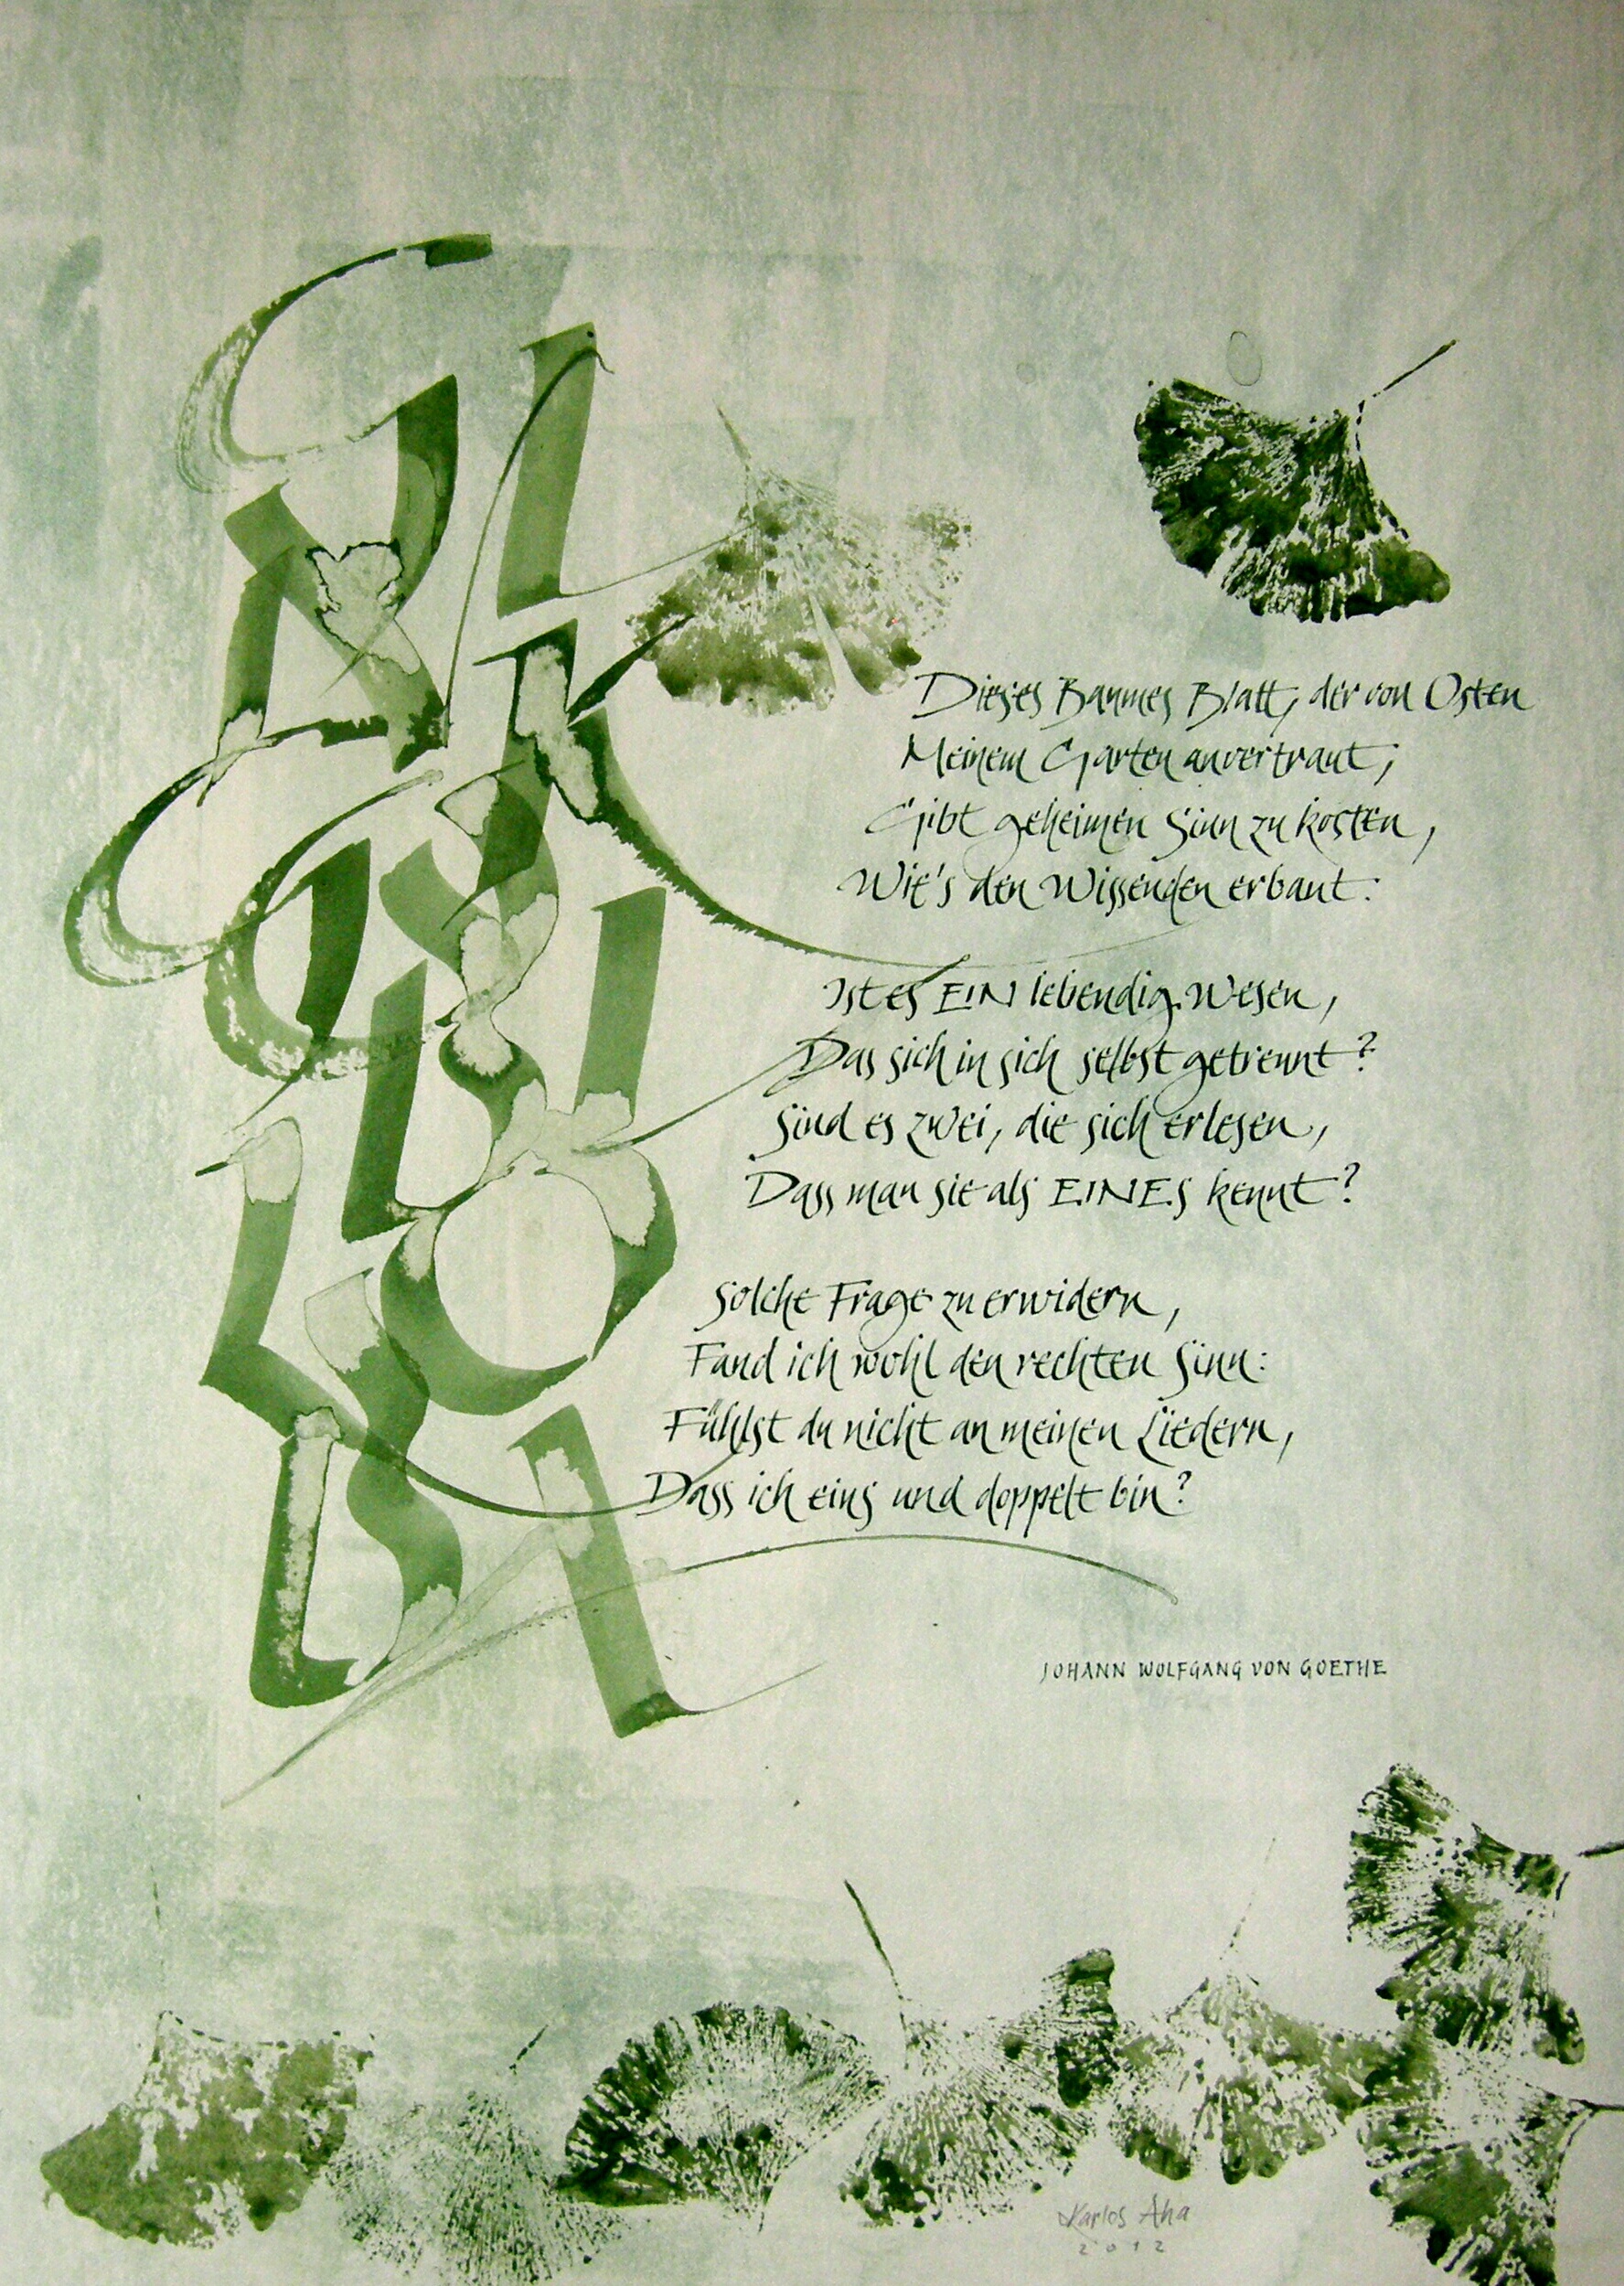 GINKGO
BILOBA
Dieses Baumes Blatt, der von Osten
Meinem Garten anvertraut,
Gibt geheimen Sinn zu kosten,
Wie's den Wissenden erbaut.
Ist es EIN lebendig Wesen,
Das sich in sich selbst getrennt?
Sind es zwei, die sich erlesen,
Dass man sie als EINES kennt?
Solche Frage zu erwidern,
Fand ich wohl den rechten Sinn:
Fühlst du nicht an meinen Liedern,
Dass ich eins und doppelt bin?
JOHANN WOLFGANG VON GOETHE
Karlos Aha
2012